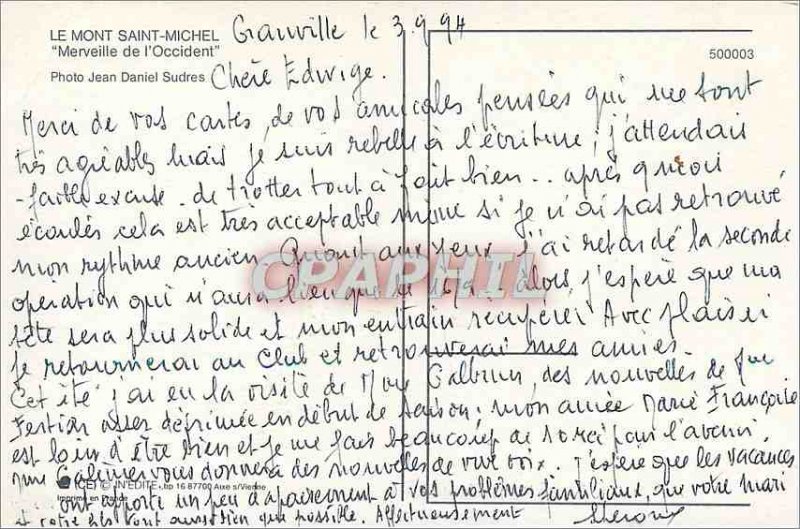 LE MONT SAINT-MICHEL
"Merveille de l'Occident"
Photo Jean Daniel Sudres
500003
Granville le 3.9.94
Chère Edwige.
Merci de vos cartes, de vos amicales pensées qui me sont
très agréables mais je suis rebelle à l'écriture ; j'attendais
- faible excuse - de trotter tout à fait bien .. après quoi
écoulés cela est très acceptable même si je n'ai pas retrouvé
mon rythme ancien. Quant aux yeux j'ai retardé la seconde
opération qui n'aura lieu que le alors j'espère que ma
tête sera plus solide et mon entrain récupéré. Avec plaisir
je retournerai au Club et retrouverai mes amies.
Cet été j'ai eu la visite de Mme des nouvelles de Mme
assez déprimée en début de saison ; mon amie Marie Françoise
est loin d'être bien et je me fais beaucoup de souci pour l'avenir.
Mme vous donnera des nouvelles de vive voix. J'espère que les vacances
ont apporté un peu d'apaisement à vos problèmes familiaux, que votre mari
et votre fils vont aussi bien que possible. Affectueusement
CPAPHIL
IN'EDITE, bp 16 87700 Aixe s/Vienne
Imprimé en France